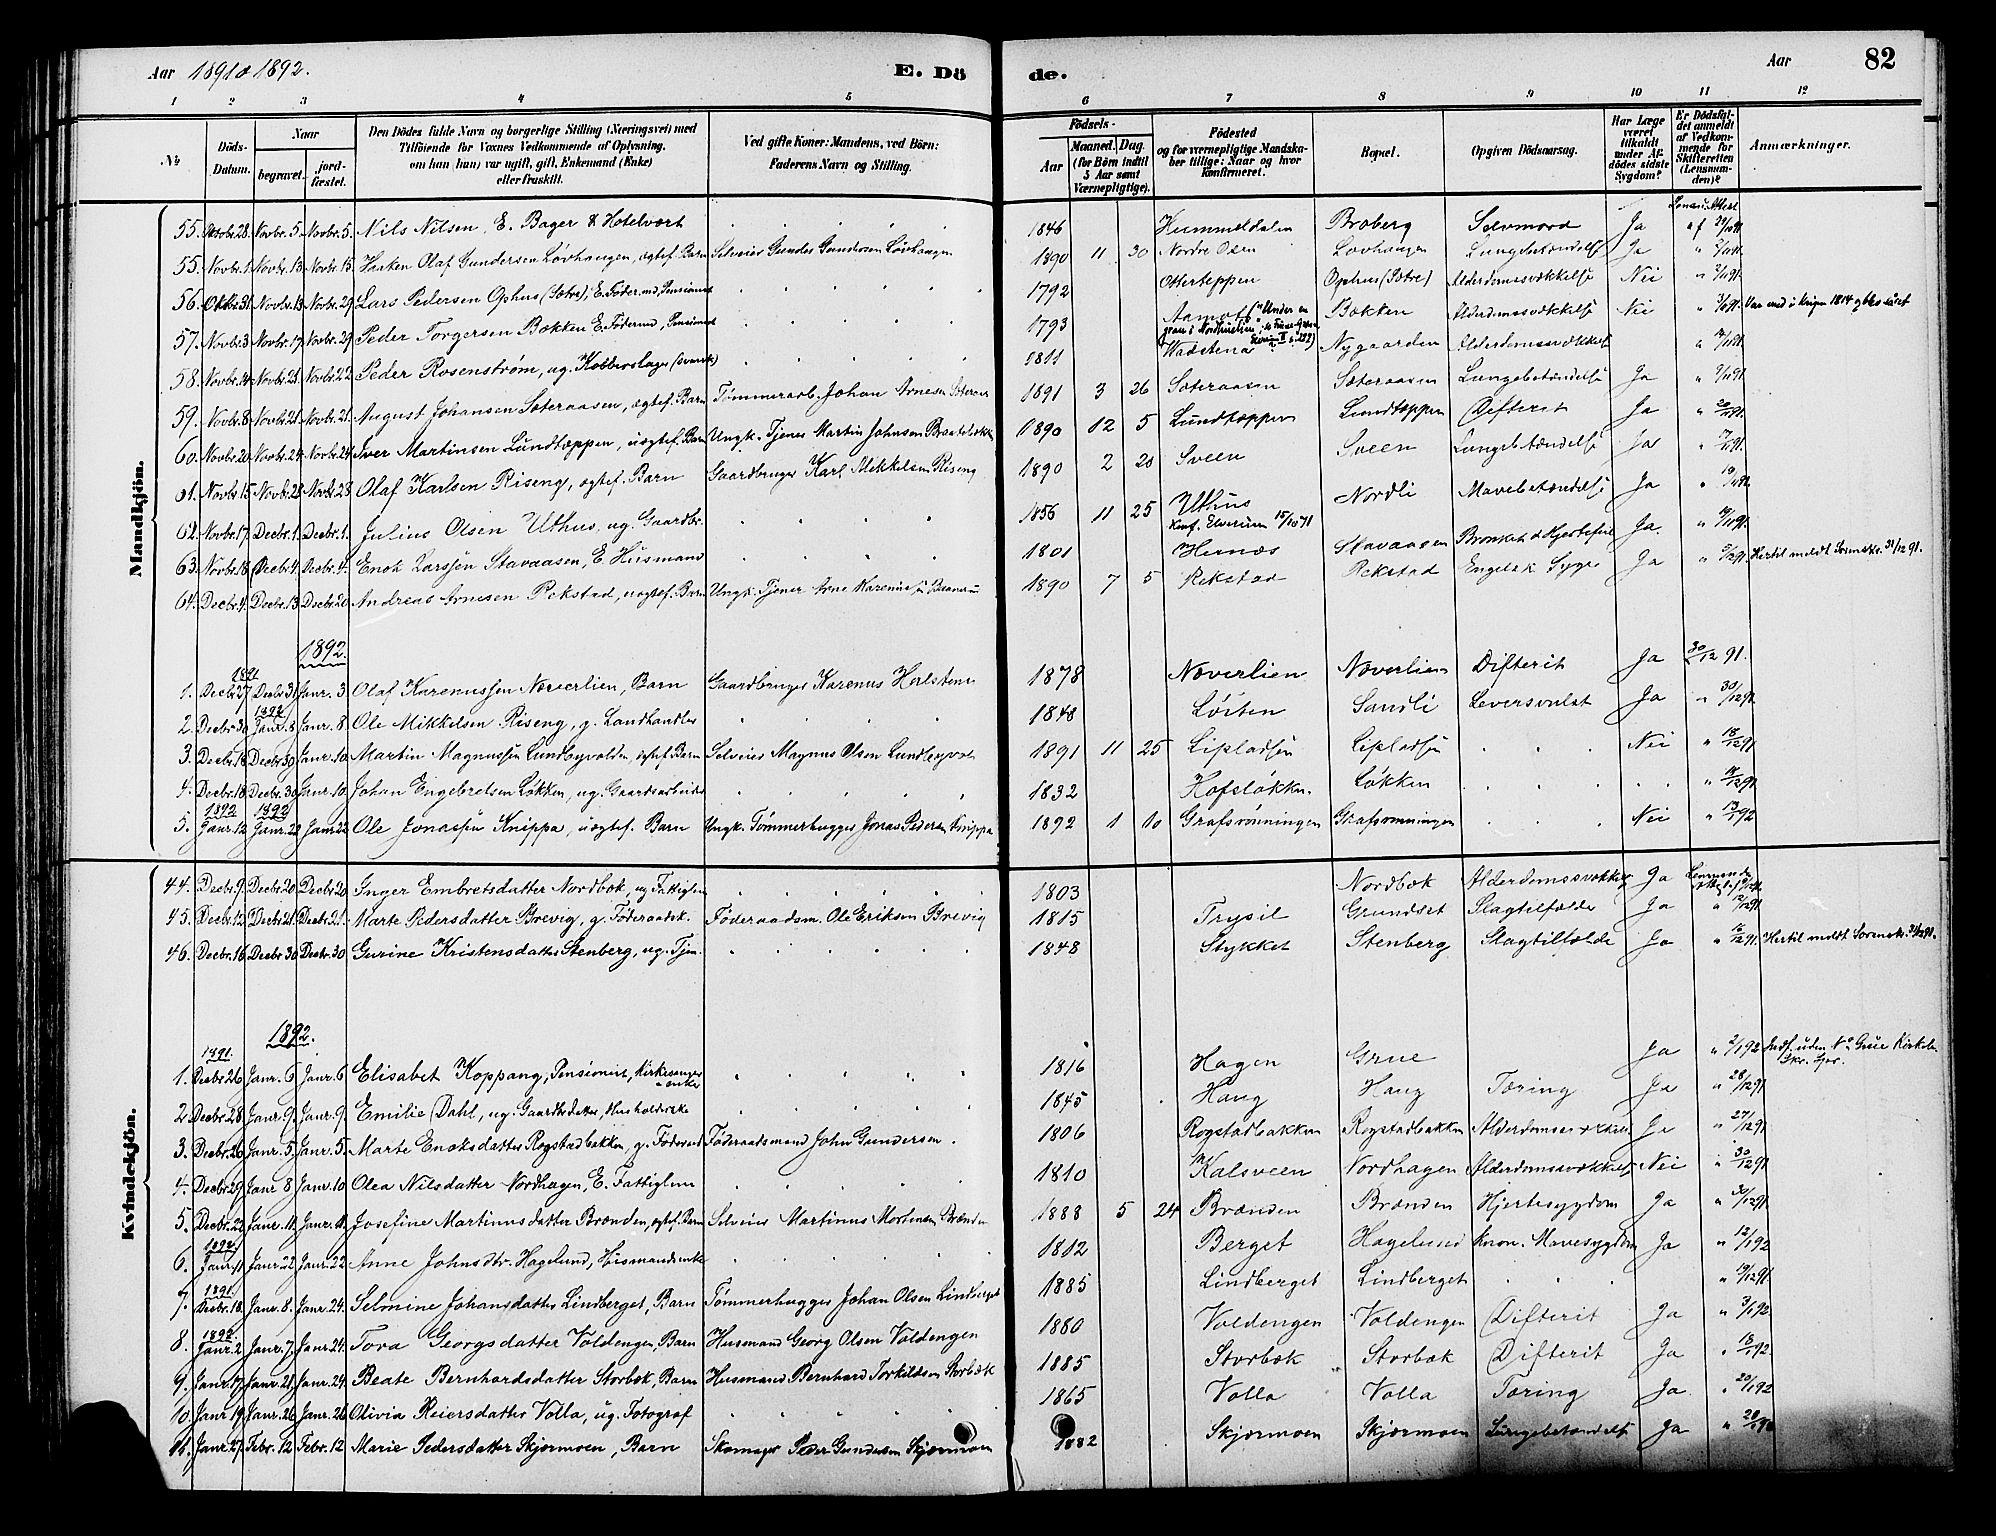 Aar 1891 & 1892. E. Dö de. Aar 82
1 2 3 4 5 6 7 8 9 10 11 12
No Döds-Datum. Naar begravet. jordfæstet. Den Dödes fulde Navn og borgerlige Stilling (Næringsvei) med Tilföiende for Voxnes Vedkommende af Oplysning, om han (hun) var ugift, gift, Enkemand (Enke) eller fraskilt. Ved gifte Koner: Mandens, ved Börn: Faderens Navn og Stilling. Födsels- Aar Maaned. Dag. (for Börn indtil 5 Aar samt Værnepligtige). Födested og for værnepligtige Mandskaber tillige: Naar og hvor konfirmeret. Bopæl. Opgiven Dödsaarsag. Har Læge været tilkaldt under Afdödes sidste Sygdom? Er Dödsfaldet anmeldt af Vedkommende for Skifteretten (Lensmanden)? Anmærkninger.
Mandkjön.
55. Novbr. 5. Novbr. 5. Nils Nilsen, E. Bager & Hotelvært 1846 Hummeldalen Broberg Selvmord Ja
55. Novbr. 1 Novbr. 13 Novbr. 15. Haaken Olaf Gundersen Løvhaugen, ægtef. Barn Selveier Gunder Gundersen Løvhaugen 1890 11 30 Nordre Osen Lovhaugen Lungebetændelse Ja
56. Oktbr. 31 Novbr. 13 Novbr. 29 Lars Pedersen Ophus (Sætre), E. Fødermd, Pensionist 1792 Otterteppen Ophus (Sætre) Alderdomssvækkelse Nei
57. Novbr. 3 Novbr. 17 Novbr. 29 Peder Torgersen Bækken E. Føderмd, Pensionist 1793 Aamot Bækken Alderdomssvækkelse Nei Var med i krigen 1814 og blev såret
58. Novbr. 14 Novbr. 21. Novbr. 22 Peder Rosenstrøm, ug. Kobberslager (svensk) 1811 Wadstena Nygaarden Alderdomssvækkelse
59. Novbr. 8 Novbr. 21 Novbr. 21. August Johansen Sæteraasen, ægtef. Barn Tømmerarb. Johan Arnesen Sæteraas 1891 3 26 Sæteraasen Sæteraasen Lungebetændelse Ja
60. Novbr. 20 Novbr. 24 Novbr. 24 Iver Martinsen Lundtæppen, uægtef. Barn Ungk. Tjener Martin Johnsen 1890 12 5 Lundtæppen Lundtæppen Difterit Ja
61. Novbr. 15 Novbr. 28 Novbr. 28 Olaf Karlsen Riseng, ægtef. Barn Gaardbruger Karl Mikkelsen Riseng 1890 2 20 Sveen Sveen Lungebetændelse Ja
62. Novbr. 17. Decbr. 1. Decbr. 1. Julius Olsen Uthus, ug. Gaardbr. 1856 11 25 Uthus Konf. Elverum 15/10 71 Nordli Mavebetændelse Ja
63. Novbr. 18 Decbr. 4. Decbr. 4. Enok Larssen Stavaasen, E. Husmand 1801 Hernæs Stavaasen Bronkit & Hjertefeil Ja. Hertil meldt Sorenskr. 31/12 91.
64. Decbr. 4. Decbr. 13 Decbr. 20 Andreas Arnesen Rekstad, uægtef. Barn Ungk. Tjener Arne Karenius 1890 7 5 Rekstad Rekstad Engelsk Syge Ja
1892.
1. 1891 Decbr. 27 Decbr. 31 Janr. 3 Olaf Karenussen Nøverlien, Barn Gaardbruger Karenus 1878 Nøverlien Nøverlien Difterit Ja 30/12 91.
2. Decbr. 30 1892 Janr. 8 Janr. 8. Ole Mikkelsen Riseng, g. Landhandler 1848 Løiten Sandli Leversvulst Ja " 30/12 91
3. Decbr. 18 Decbr. 30 Janr. 10. Martin Magnussen Lundbyvolden, ægtef. Barn Selveier Magnus Olsen 1891 11 25 Lipladsen Lipladsen Nei " 18/12 91
4. Decbr. 18. Decbr. 30 Janr. 10. Johan Engebretsen Løkken, ug. Gaardsarbeider 1832 Hofsløkken. Løkken
5. 1892 Janr. 12 1892 Janr. 22 Janr. 22. Ole Jonassen Knippa, uægtef. Barn Ungk. Tømmerhugger Jonas Pedersen Knippa 1892 1 10 Grafsrønningen Grafsrønningen Nei " 13/1 92
Kvindekjön.
44. Decbr. 9. Decbr. 20 Decbr. 20 Inger Embretsdatter Nordbæk, ug. Fattiglem 1803 Nordbæk Alderdomssvækkelse Ja
45. Decbr. 12 Decbr. 21 Decbr. 21. Marte Pedersdatter Brevig, g. Føderaadsk. Føderaadsm. Ole Eriksen Brevig 1815 Trysil Grundset Slagtilfælde Ja
46. Decbr. 16 Decbr. 30 Decbr. 30 Gurine Kristensdatter Stenberg, ug. Tjen. 1848 Stykket Stenberg Slagtilfælde Ja " 16/12 91. Hertil meldt Sorenskr. 31/12 91.
1892.
1. 1891. Decbr. 26 Janr. 6 Janr. 6 Elisabet Koppang, Pensionist, Kirkesangerenke 1816 Hagen Grue Ja " 2/1 92 Indf. uden No
2 Decbr. 28. Janr. 9. Janr. 9. Emilie Dahl, ug. Gaardbr. datter, Husholderske 1845 Haug Haug Tæring Ja " 28/12 91
3. Decbr. 26 Janr. 5 Janr. 5. Marte Enoksdatter Rogstadbakken, g. Føderaad Føderaadsmand John Gundersen. 1806 Rogstadbakken Rogstadbakken Alderdomssvækkelse Ja " 27/12 91
4. Decbr. 29 Janr. 8 Janr. 10 Olea Nilsdatter Nordhagen, E. Fattiglem 1810 Kalsveen Nordhagen Alderdomssvækkelse Nei " 30/12 91
5. Decbr. 22 Janr. 11. Janr. 11. Josefine Martinusdatter Brænden, ægtef. Barn Selveier Martinus Mortensen Brænden 1888 5 24 Brænden Brænden Hjertesygdom Ja " 30/12 91
6. 1892. Janr. 11 Janr. 22 Janr. 22 Anne Johnsdtr. Hagelund, Husmandsenke 1812 Berget Hagelund kron. Mavesygdom Ja " 12/1 92
7. 1891. Decbr. 18. Janr. 8. Janr. 24. Selmine Johansdatter Lindberget, Barn Tømmerhugger Johan Olsen Lindberget 1885 Lindberget Lindberget " 19/12 91.
8. 1892 Janr. 2 Janr. 7. Janr. 24. Tora Georgsdatter Voldengen, Barn Husmand Georg Olsen Voldengen 1880 Voldengen Voldengen Difterit Ja " 3/1 92
9. Janr. 17. Janr. 21. Janr. 24. Beate Bernhardsdatter Storbæk, Barn Husmand Bernhard Torkildsen Storbæk 1885 Storbæk Storbæk Difterit Ja " 18/1 92.
10. Janr. 19 Janr. 26 Janr. 26 Olivia Reiersdatter Volla, ug. Fotograf 1865 Volla Volla Tæring Ja " 20/1 92
11. Janr. 27 Febr. 12 Febr. 12 Marie Pedersdatter Skjærmoen, Barn Skomager Peder Gundersen Skjærmoen 1882 Skjærmoen Skjærmoen Lungebetændelse Ja